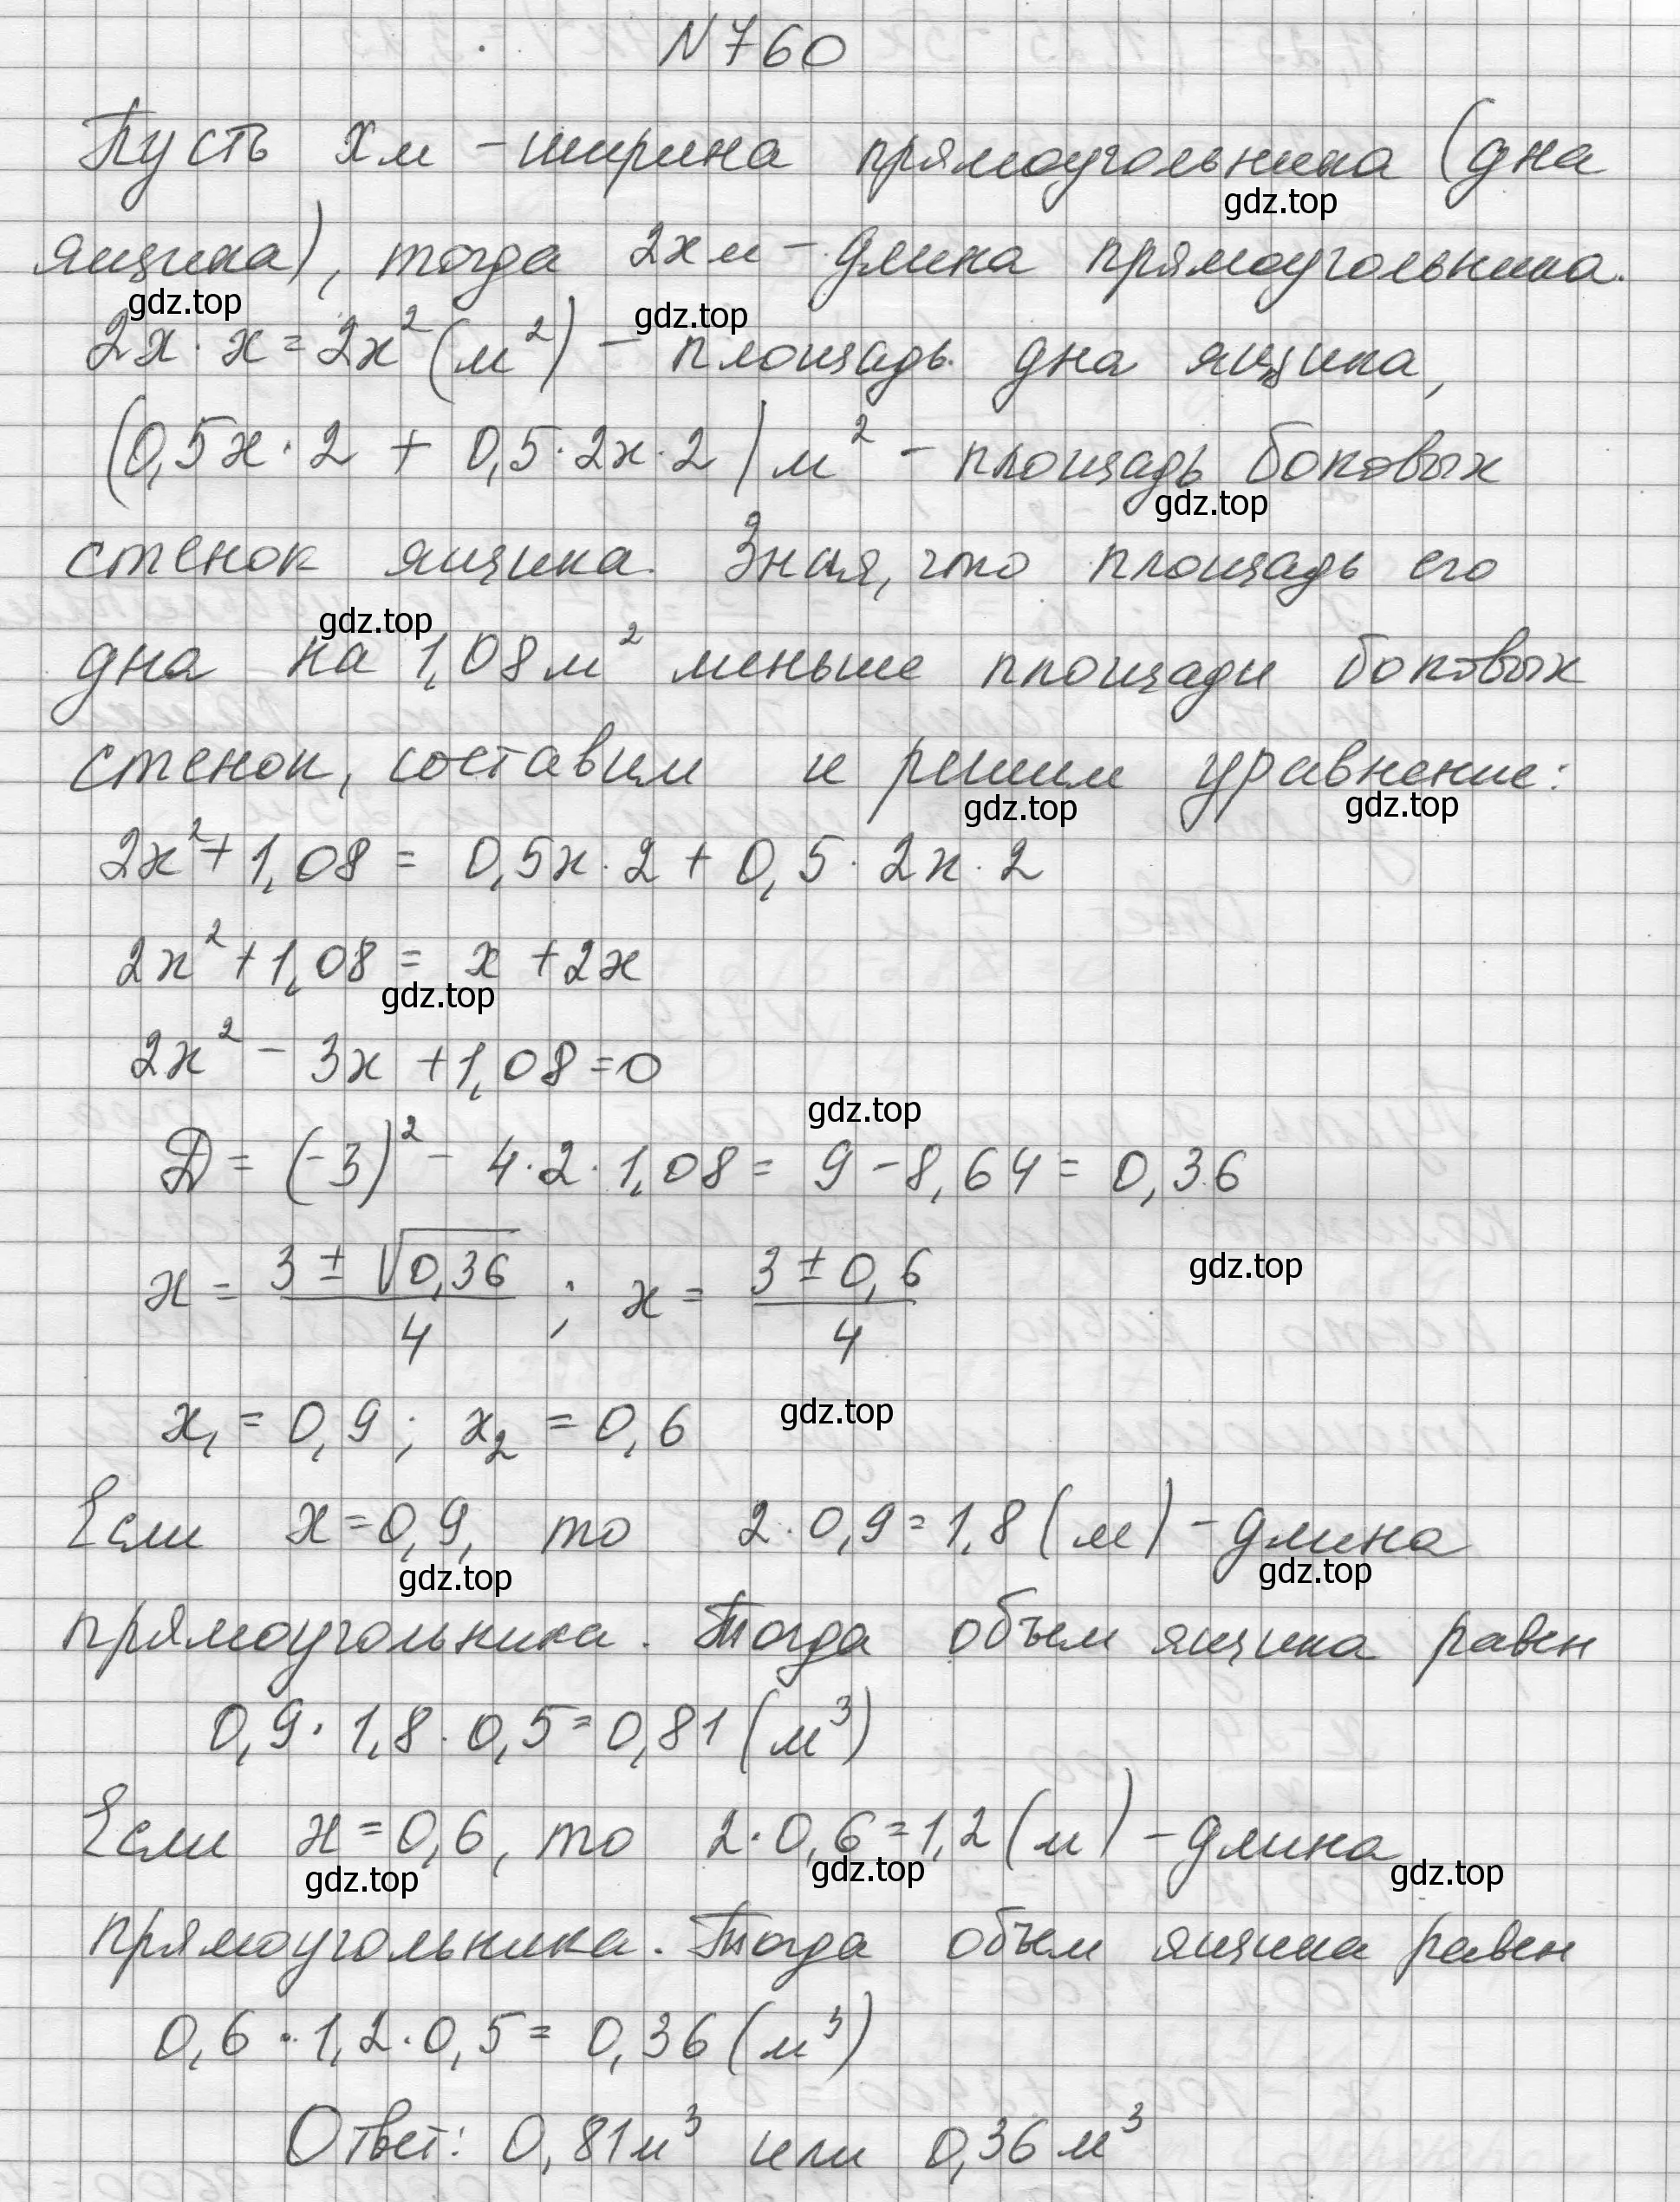 N 760
Пусть x м - ширина прямоугольника (дна
gdz.top
ящика), тогда 2x м - длина прямоугольника.
gdz.top gdz.top
2x · x = 2x² (м²) - площадь дна ящика,
(0,5x · 2 + 0,5 · 2x · 2) м² - площадь боковых
gdz.top
стенок ящика. Зная, что площадь его
gdz.top
дна на 1,08 м² меньше площади боковых
стенок, составим и решим уравнение:
gdz.top gdz.top
2x² + 1,08 = 0,5x · 2 + 0,5 · 2x · 2
2x² + 1,08 = x + 2x
gdz.top
2x² - 3x + 1,08 = 0
gdz.top
D = (-3)² - 4 · 2 · 1,08 = 9 - 8,64 = 0,36
x = (3 ± √0,36)/4 ; x = (3 ± 0,6)/4
gdz.top
x₁ = 0,9 ; x₂ = 0,6
gdz.top
Если x = 0,9, то 2 · 0,9 = 1,8 (м) - длина
gdz.top gdz.top
прямоугольника. Тогда объем ящика равен
0,9 · 1,8 · 0,5 = 0,81 (м³)
Если x = 0,6, то 2 · 0,6 = 1,2 (м) - длина
gdz.top gdz.top gdz.top
прямоугольника. Тогда объем ящика равен
0,6 · 1,2 · 0,5 = 0,36 (м³)
Ответ: 0,81 м³ или 0,36 м³